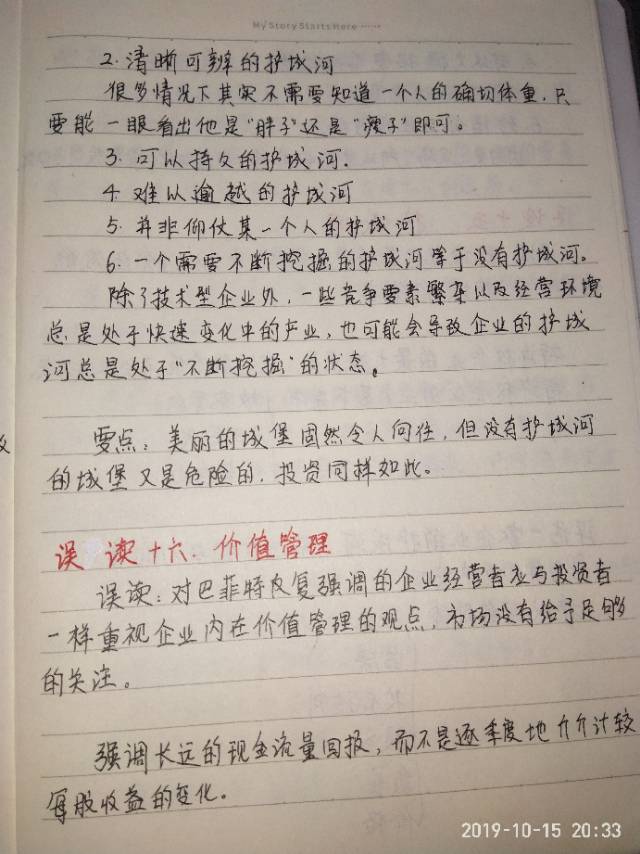 My Story Starts Here ······
2. 清晰可辨的护城河
很多情况下其实不需要知道一个人的确切体重，只
要能一眼看出他是“胖子”还是“瘦子”即可。
3. 可以持久的护城河.
4. 难以逾越的护城河
5. 并非仰仗某一个人的护城河
6. 一个需要不断挖掘的护城河等于没有护城河。
除了技术型企业外，一些竞争要素繁杂以及经营环境
总是处于快速变化中的产业，也可能会导致企业的护城
河总是处于“不断挖掘”的状态。
要点：美丽的城堡固然令人向往，但没有护城河
的城堡又是危险的，投资同样如此。
误读十六. 价值管理
误读：对巴菲特反复强调的企业经营者应与投资者
一样重视企业内在价值管理的观点，市场没有给予足够
的关注。
强调长远的现金流量回报，而不是逐季度地介介计较
每股收益的变化。
2019-10-15 20:33